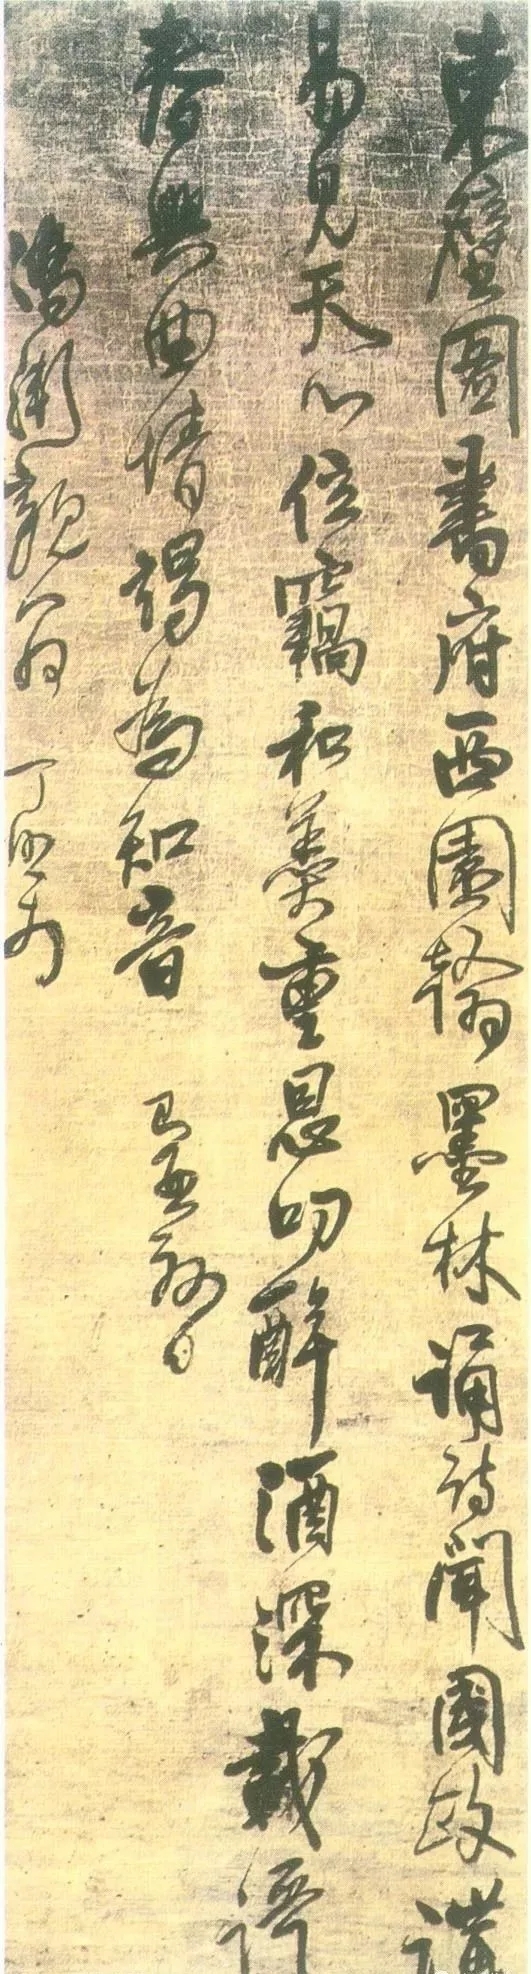 東壁圖書府西園翰墨林誦詩聞國政講
易見天心位竊和羹重恩叨醉酒深載
春興曲情竭為知音
親翁